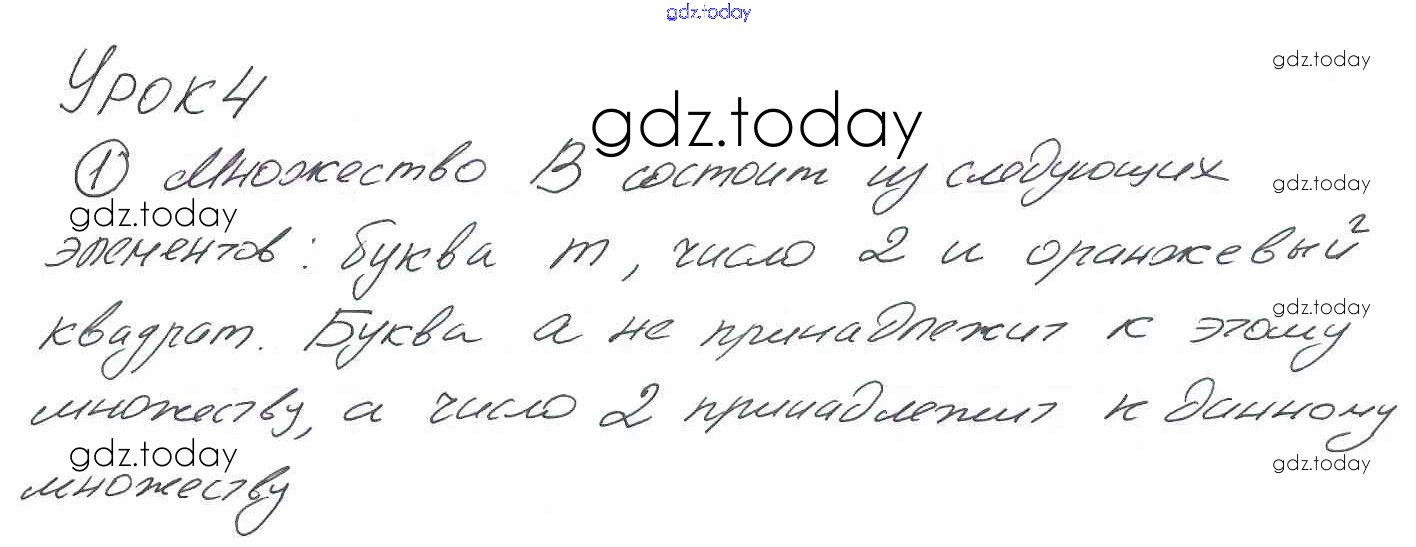 gdz.today
gdz.today
Урок 4
gdz.today
① Множество В состоит из следующих
gdz.today
gdz.today
элементов: буква m, число 2 и оранжевый
квадрат. Буква а не принадлежит к этому
gdz.today
множеству, а число 2 принадлежит к данному
gdz.today
gdz.today
множеству